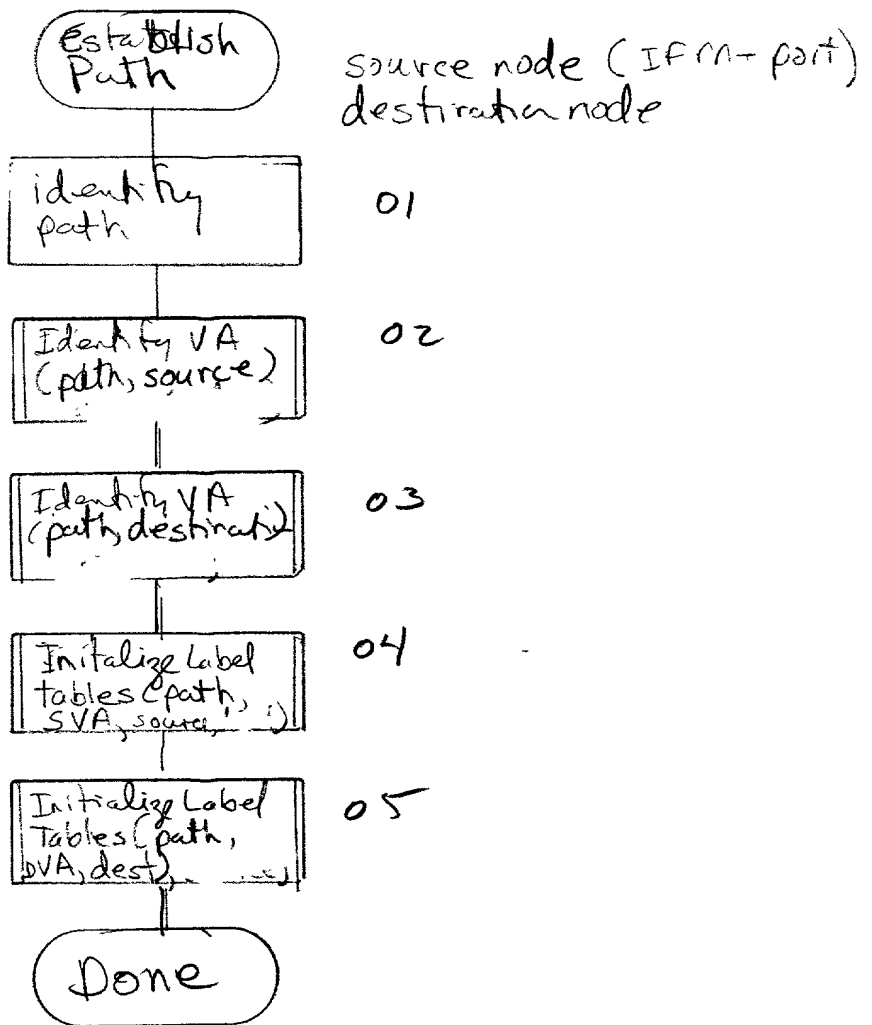 Establish
Path
source node (IFM + port)
destination node
identify
path
01
Identify VA
(path, source)
02
Identify VA
(path, destinati)
03
Initalize Label
tables (path,
SVA, source,
04
Initialize Label
Tables (path,
DVA, dest),
05
Done